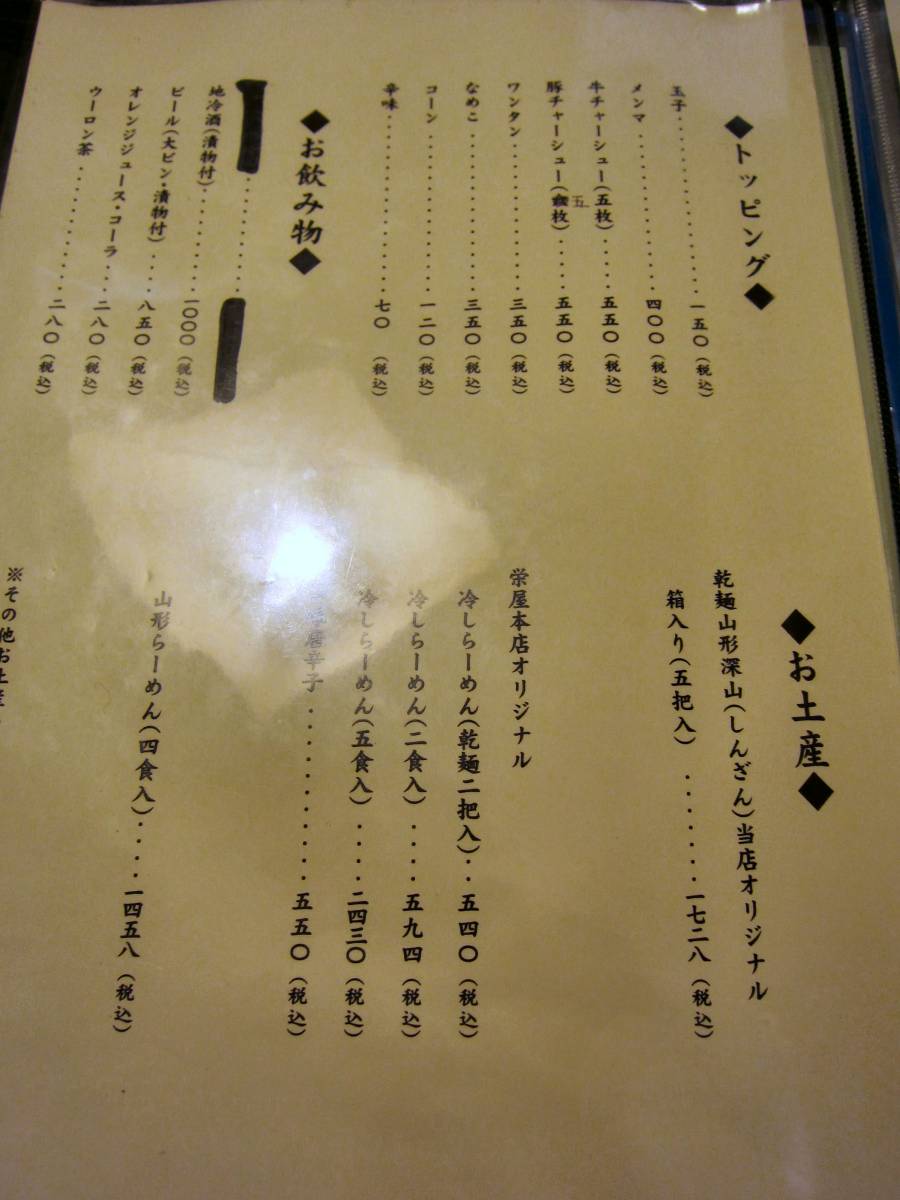 ◆トッピング◆
玉子・・・・・・・・・・・・・・一五〇（税込）
メンマ・・・・・・・・・・・・・四〇〇（税込）
牛チャーシュー（五枚）・・・・・五五〇（税込）
豚チャーシュー（五枚）・・・・・五五〇（税込）
ワンタン・・・・・・・・・・・・三五〇（税込）
なめこ・・・・・・・・・・・・・三五〇（税込）
コーン・・・・・・・・・・・・・一二〇（税込）
辛味・・・・・・・・・・・・・・七〇（税込）
◆お飲み物◆
地冷酒（漬物付）・・・・・・・・一〇〇〇（税込）
ビール（大ビン・漬物付）・・・・八五〇（税込）
オレンジジュース・コーラ・・・・二八〇（税込）
ウーロン茶・・・・・・・・・・・二八〇（税込）
◆お土産◆
乾麺山形深山（しんざん）当店オリジナル
箱入り（五把入）・・・・・・・一七二八（税込）
栄屋本店オリジナル
冷しらーめん（乾麺二把入）・・五四〇（税込）
冷しらーめん（二食入）・・・・五九四（税込）
冷しらーめん（五食入）・・・・二四三〇（税込）
唐辛子・・・・・・・・・・五五〇（税込）
山形らーめん（四食入）・・・・一四五八（税込）
※その他お土産